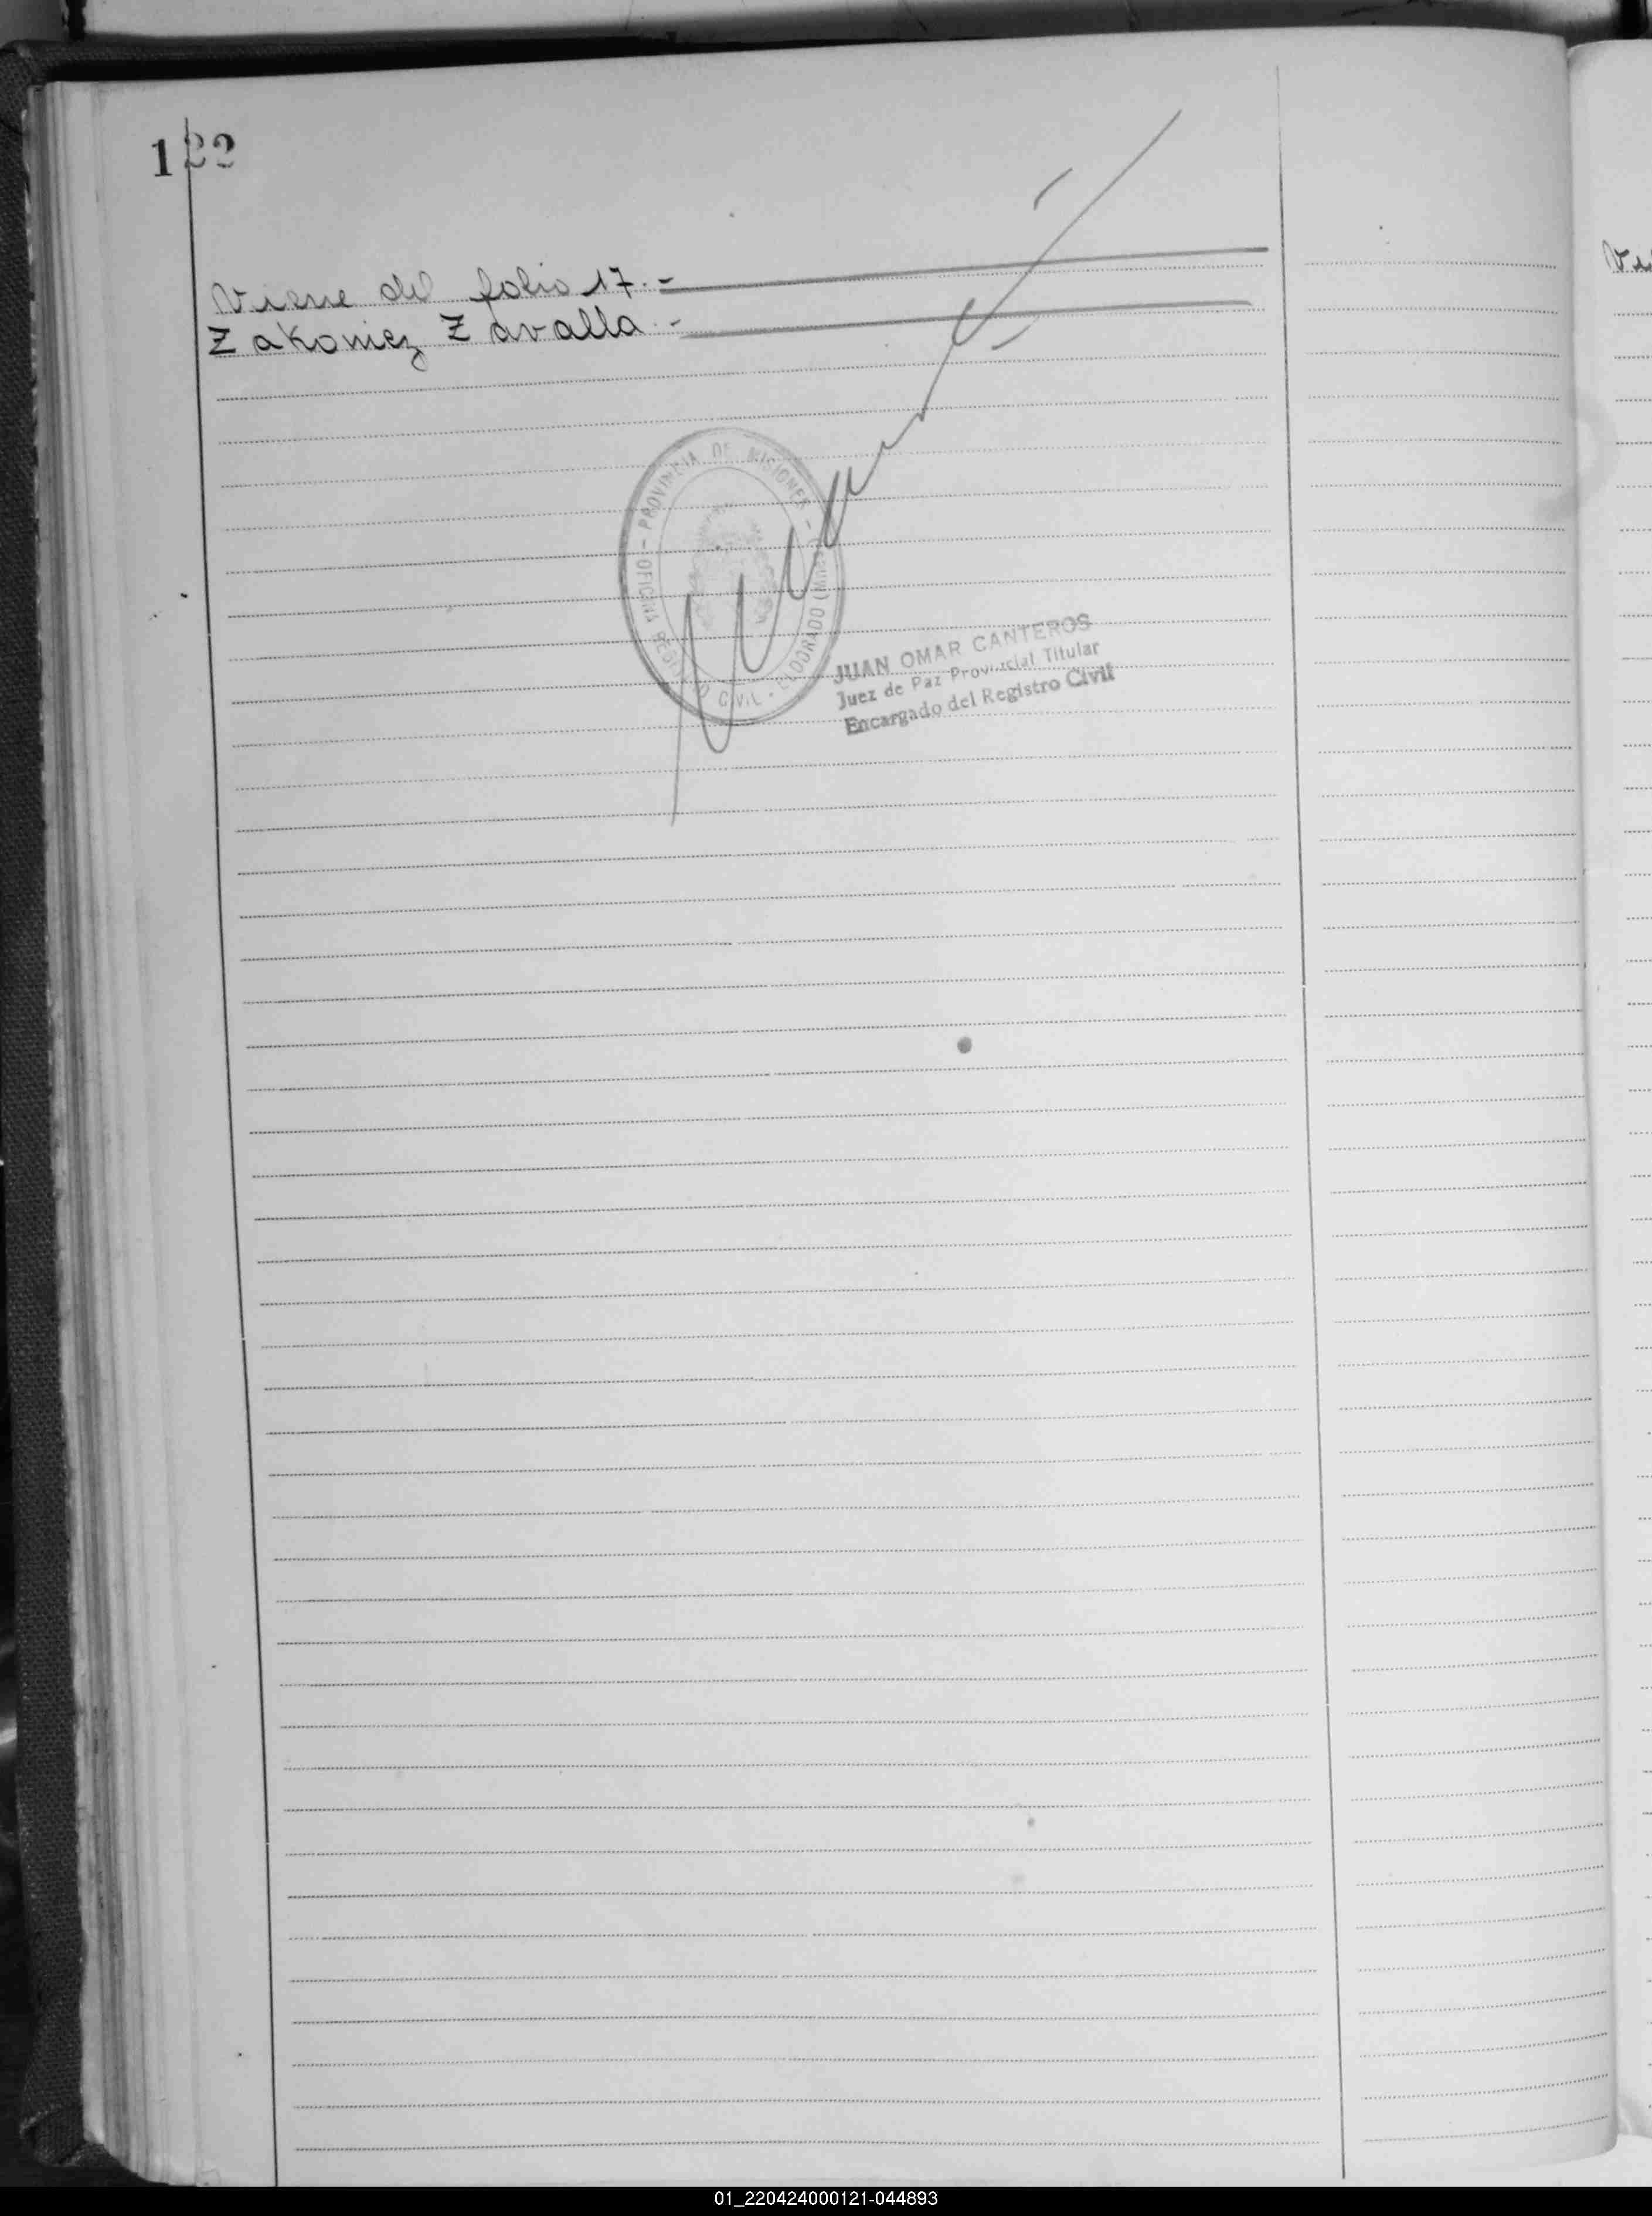 122
Viene del folio 17.-
Zakoniez Zavalla.-
- PROVINCIA DE MISIONES -
OFICINA REGISTRO CIVIL - ELDORADO
JUAN OMAR CANTEROS
Juez de Paz Provincial Titular
Encargado del Registro Civil
01_220424000121-044893